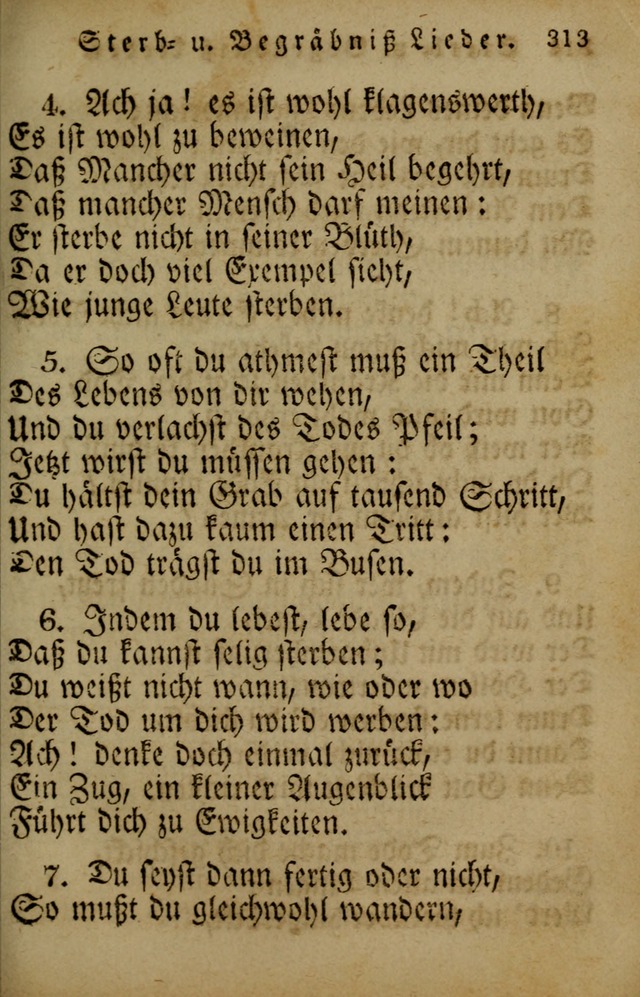 Sterb- u. Begräbniß Lieder. 313
4. Ach ja! es ist wohl klagenswerth,
Es ist wohl zu beweinen,
Daß Mancher nicht sein Heil begehrt,
Daß mancher Mensch darf meinen:
Er sterbe nicht in seiner Blüth,
Da er doch viel Exempel sieht,
Wie junge Leute sterben.
5. So oft du athmest muß ein Theil
Des Lebens von dir wehen,
Und du verlachst des Todes Pfeil;
Jetzt wirst du müssen gehen:
Du hältst dein Grab auf tausend Schritt,
Und hast dazu kaum einen Tritt:
Den Tod trägst du im Busen.
6. Indem du lebest, lebe so,
Daß du kannst selig sterben;
Du weißt nicht wann, wie oder wo
Der Tod um dich wird werben:
Ach! denke doch einmal zurück,
Ein Zug, ein kleiner Augenblick
Führt dich zu Ewigkeiten.
7. Du seyst dann fertig oder nicht,
So mußt du gleichwohl wandern,